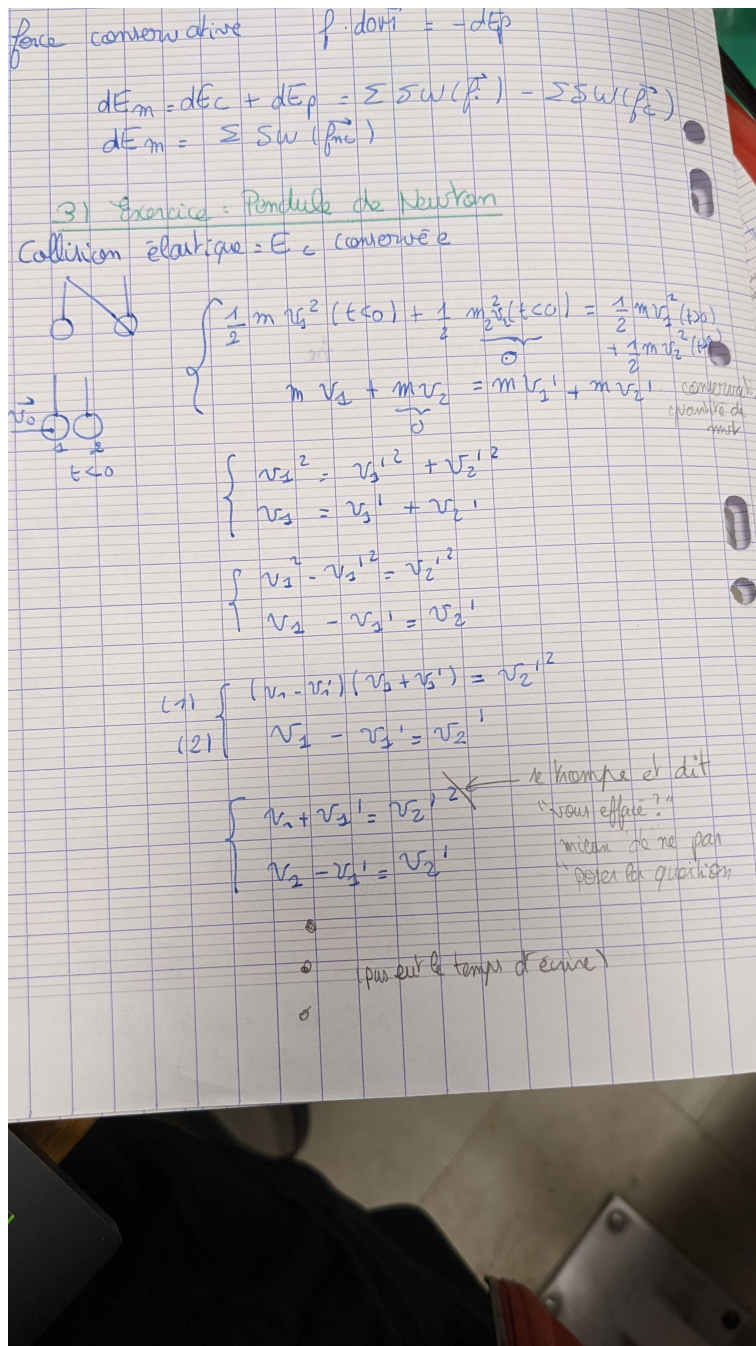 force conservative f · dom = -dEp
dEm = dEc + dEp = Σ δW(f) - Σ δW(fc)
dEm = Σ δW(fnc)
3) Exercice : Pendule de Newton
Collision élastique = Ec conservée
1/2 m v1² (t<0) + 1/2 m2 v2² (t<0) = 1/2 m v1² (t>0)
0
+ 1/2 m v2² (t>0)
m v1 + m v2 = m v1' + m v2' conservat
0
quantité de
mvt
v0
1 2
t<0
v1² = v1'² + v2'²
v1 = v1' + v2'
v1² - v1'² = v2'²
v1 - v1' = v2'
(1) (v1 - v1') (v1 + v1') = v2'²
(2) v1 - v1' = v2'
v1 + v1' = v2'²
se trompe et dit
"vous effacé ?"
v1 - v1' = v2'
mieux de ne pas
poser la question
(pas eut le temps d'écrire)